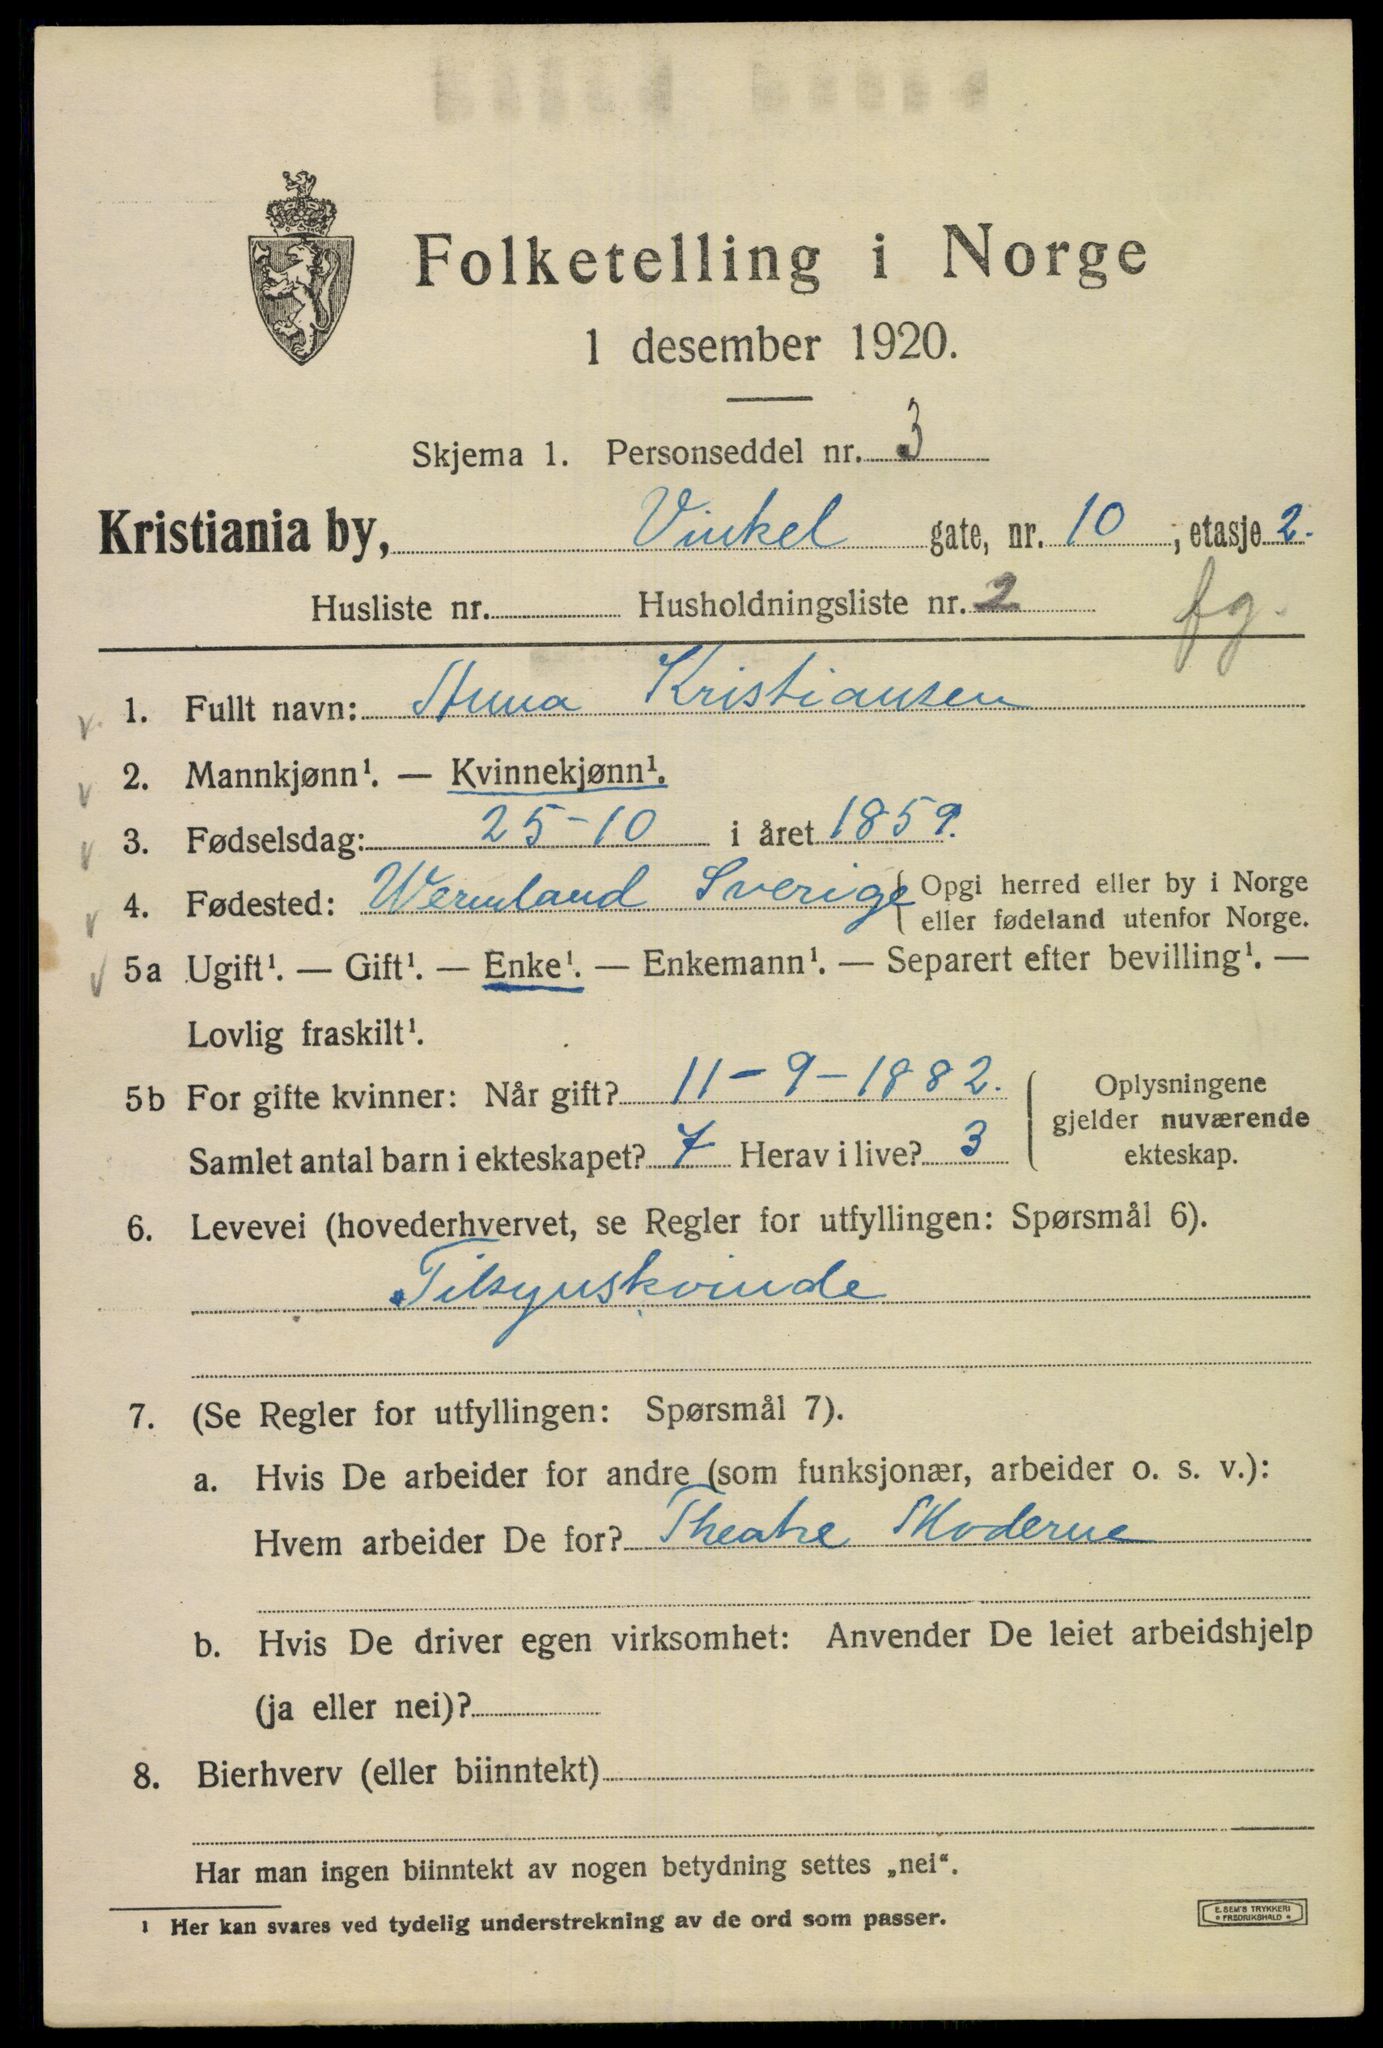 Folketelling i Norge
1 desember 1920.
Skjema 1. Personseddel nr. 3
Kristiania by, Vinkel gate, nr. 10, etasje 2.
Husliste nr. Husholdningsliste nr. 2 fg.
1. Fullt navn: Anna Kristiansen
2. Mannkjønn¹. — Kvinnekjønn¹.
3. Fødselsdag: 25-10 i året 1859.
4. Fødested: Wermland Sverige { Opgi herred eller by i Norge
eller fødeland utenfor Norge.
5a Ugift¹. — Gift¹. — Enke¹. — Enkemann¹. — Separert efter bevilling¹. —
Lovlig fraskilt¹.
5b For gifte kvinner: Når gift? 11-9-1882.
Samlet antal barn i ekteskapet? 7 Herav i live? 3
Oplysningene
gjelder nuværende
ekteskap.
6. Levevei (hovederhvervet, se Regler for utfyllingen: Spørsmål 6).
Tilsynskvinde
7. (Se Regler for utfyllingen: Spørsmål 7).
a. Hvis De arbeider for andre (som funksjonær, arbeider o. s. v.):
Hvem arbeider De for? Theatre Moderne
b. Hvis De driver egen virksomhet: Anvender De leiet arbeidshjelp
(ja eller nei)?
8. Bierhverv (eller biinntekt)
Har man ingen biinntekt av nogen betydning settes „nei“.
¹ Her kan svares ved tydelig understrekning av de ord som passer.
E. SEM'S TRYKKERI
* FREDRIKSHALD *